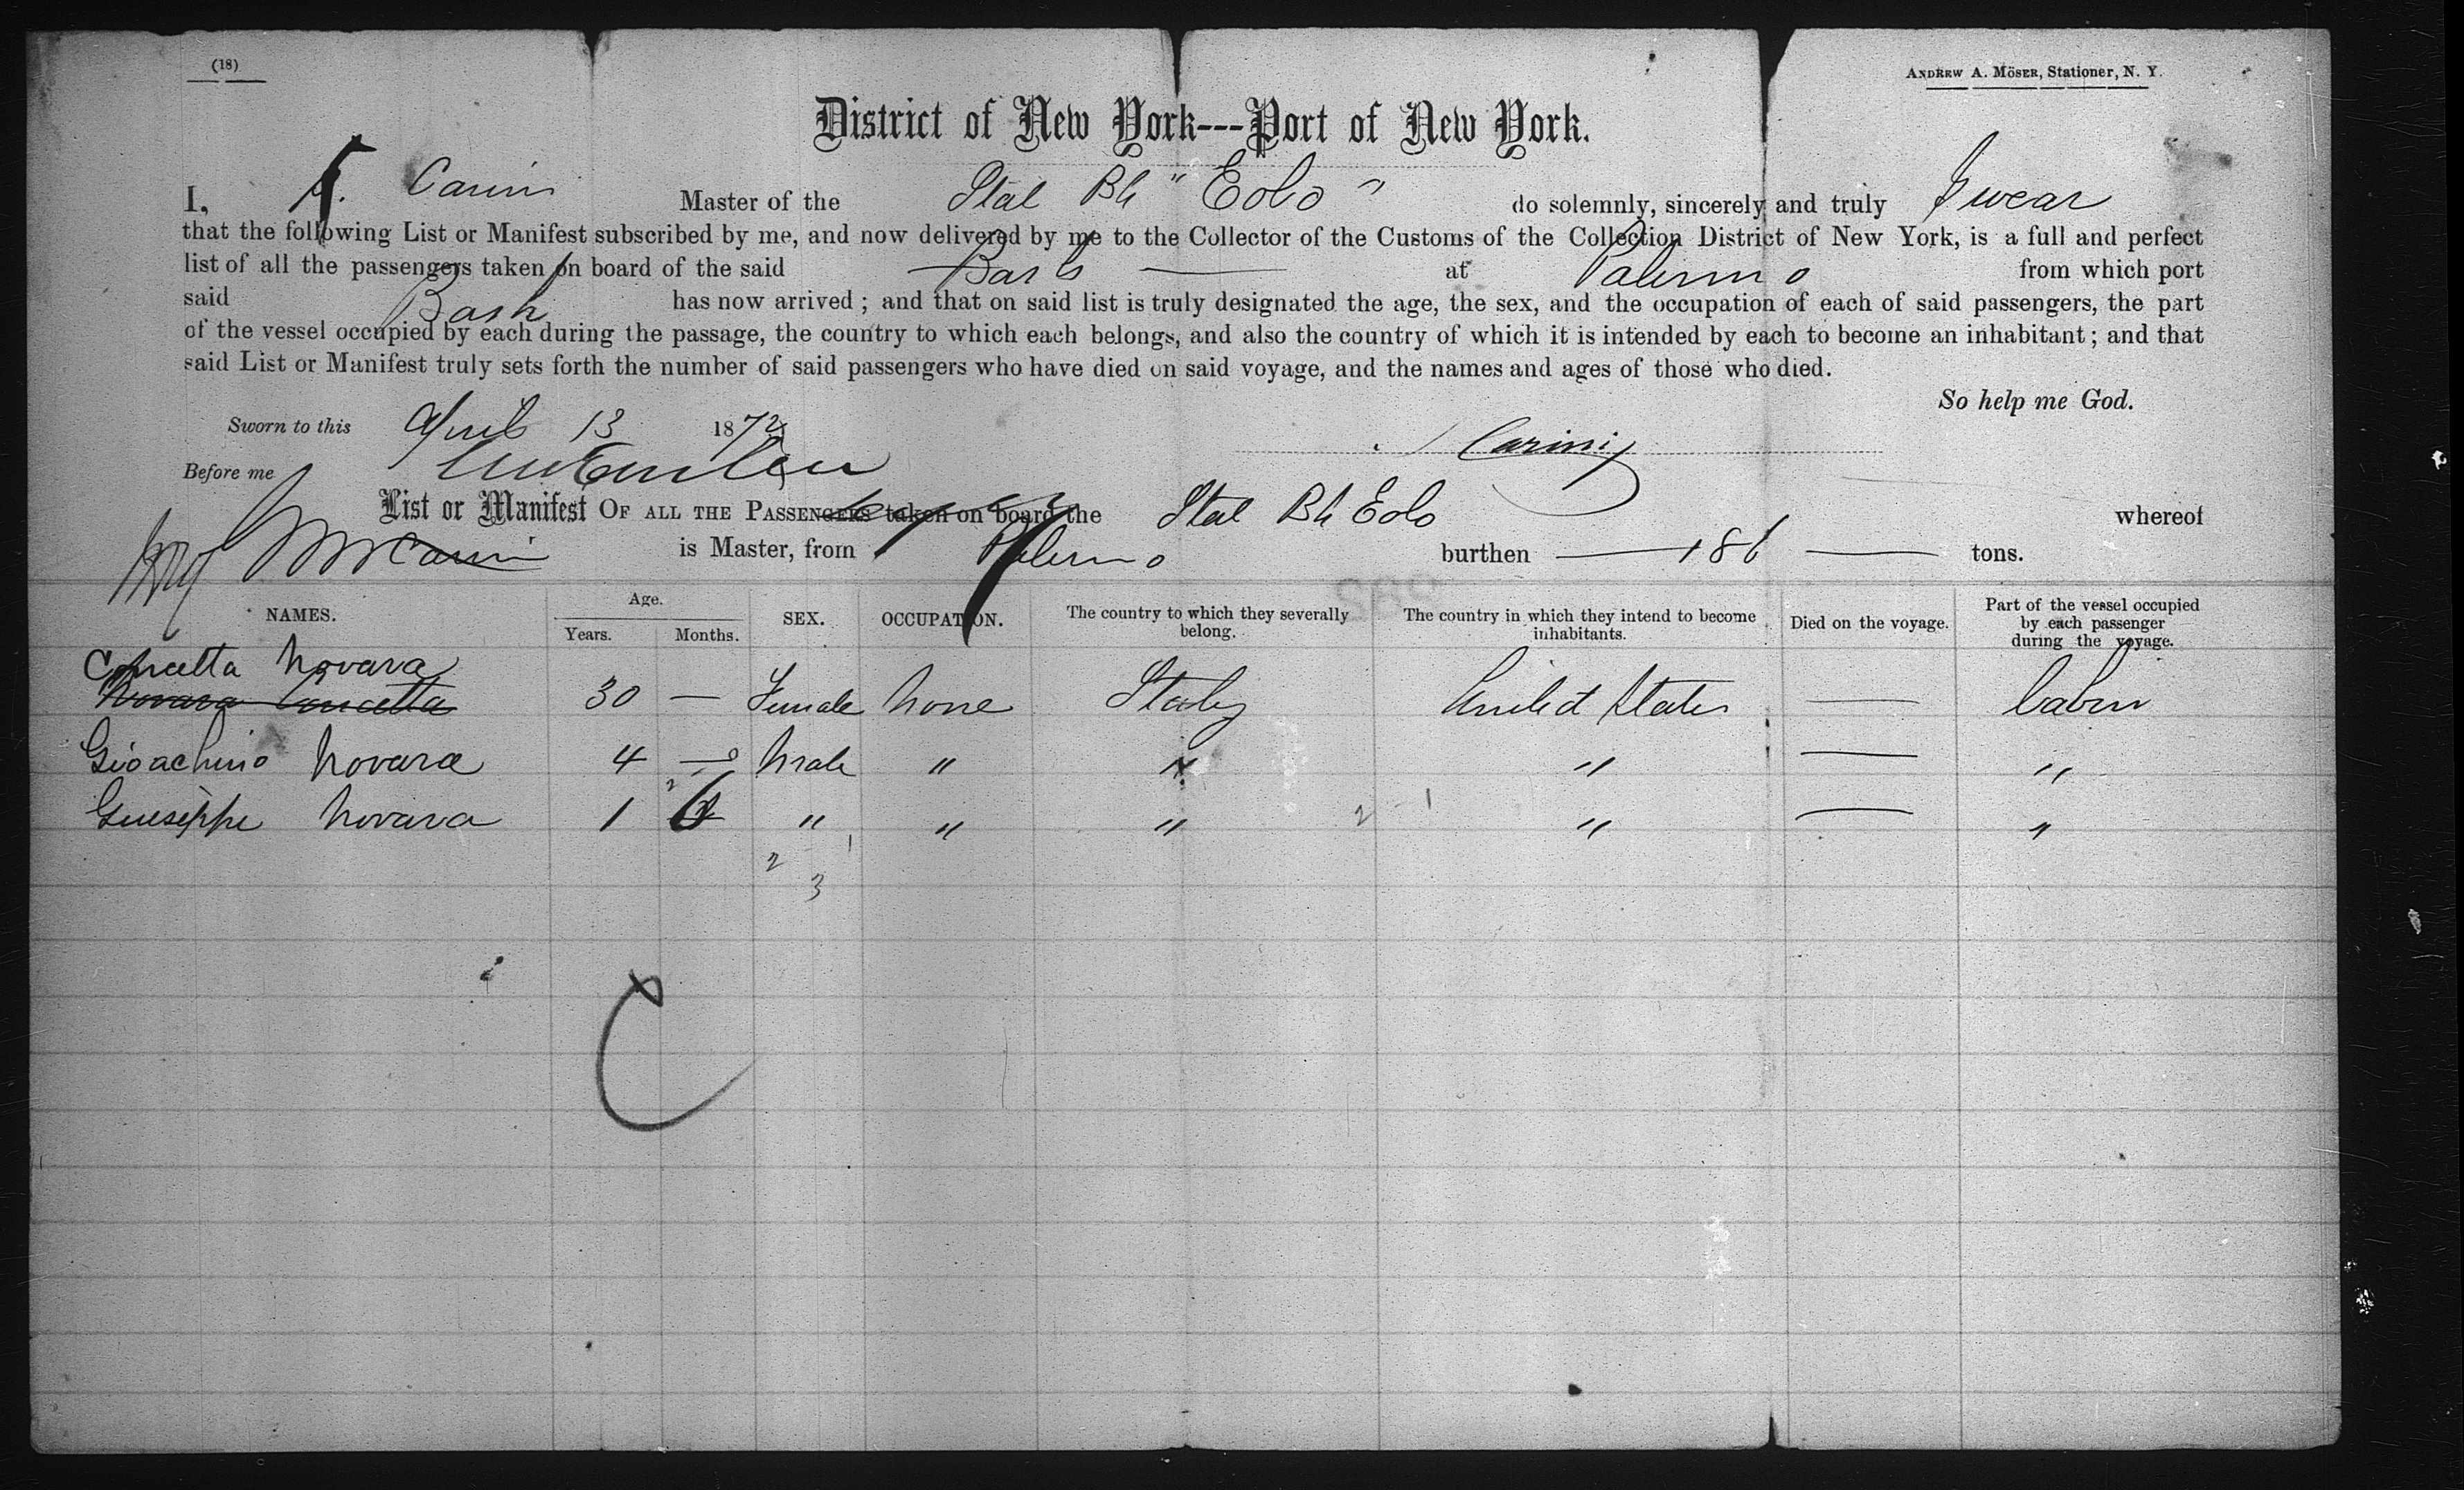 (18)
ANDREW A. MÖSER, Stationer, N. Y.
District of New York---Port of New York.
I, Carini Master of the Ital Bk "Eolo" do solemnly, sincerely and truly Swear
that the following List or Manifest subscribed by me, and now delivered by me to the Collector of the Customs of the Collection District of New York, is a full and perfect
list of all the passengers taken on board of the said Bark at Palermo from which port
said Bark has now arrived; and that on said list is truly designated the age, the sex, and the occupation of each of said passengers, the part
of the vessel occupied by each during the passage, the country to which each belongs, and also the country of which it is intended by each to become an inhabitant; and that
said List or Manifest truly sets forth the number of said passengers who have died on said voyage, and the names and ages of those who died.
So help me God.
Sworn to this April 13 1872
Carini
Before me
List or Manifest OF ALL THE PASSENGERS taken on board the Ital Bk Eolo whereof
Carini is Master, from Palermo burthen 186 tons.
NAMES. Age. Years. Months. SEX. OCCUPATION. The country to which they severally belong. The country in which they intend to become inhabitants. Died on the voyage. Part of the vessel occupied by each passenger during the voyage.
Concetta Novara
Novara Concetta 30 — Female None Italy United States — Cabin
Gioachino Novara 4 — Male " " " — "
Giuseppe Novara 1 6 " " " " — "
2 1
3